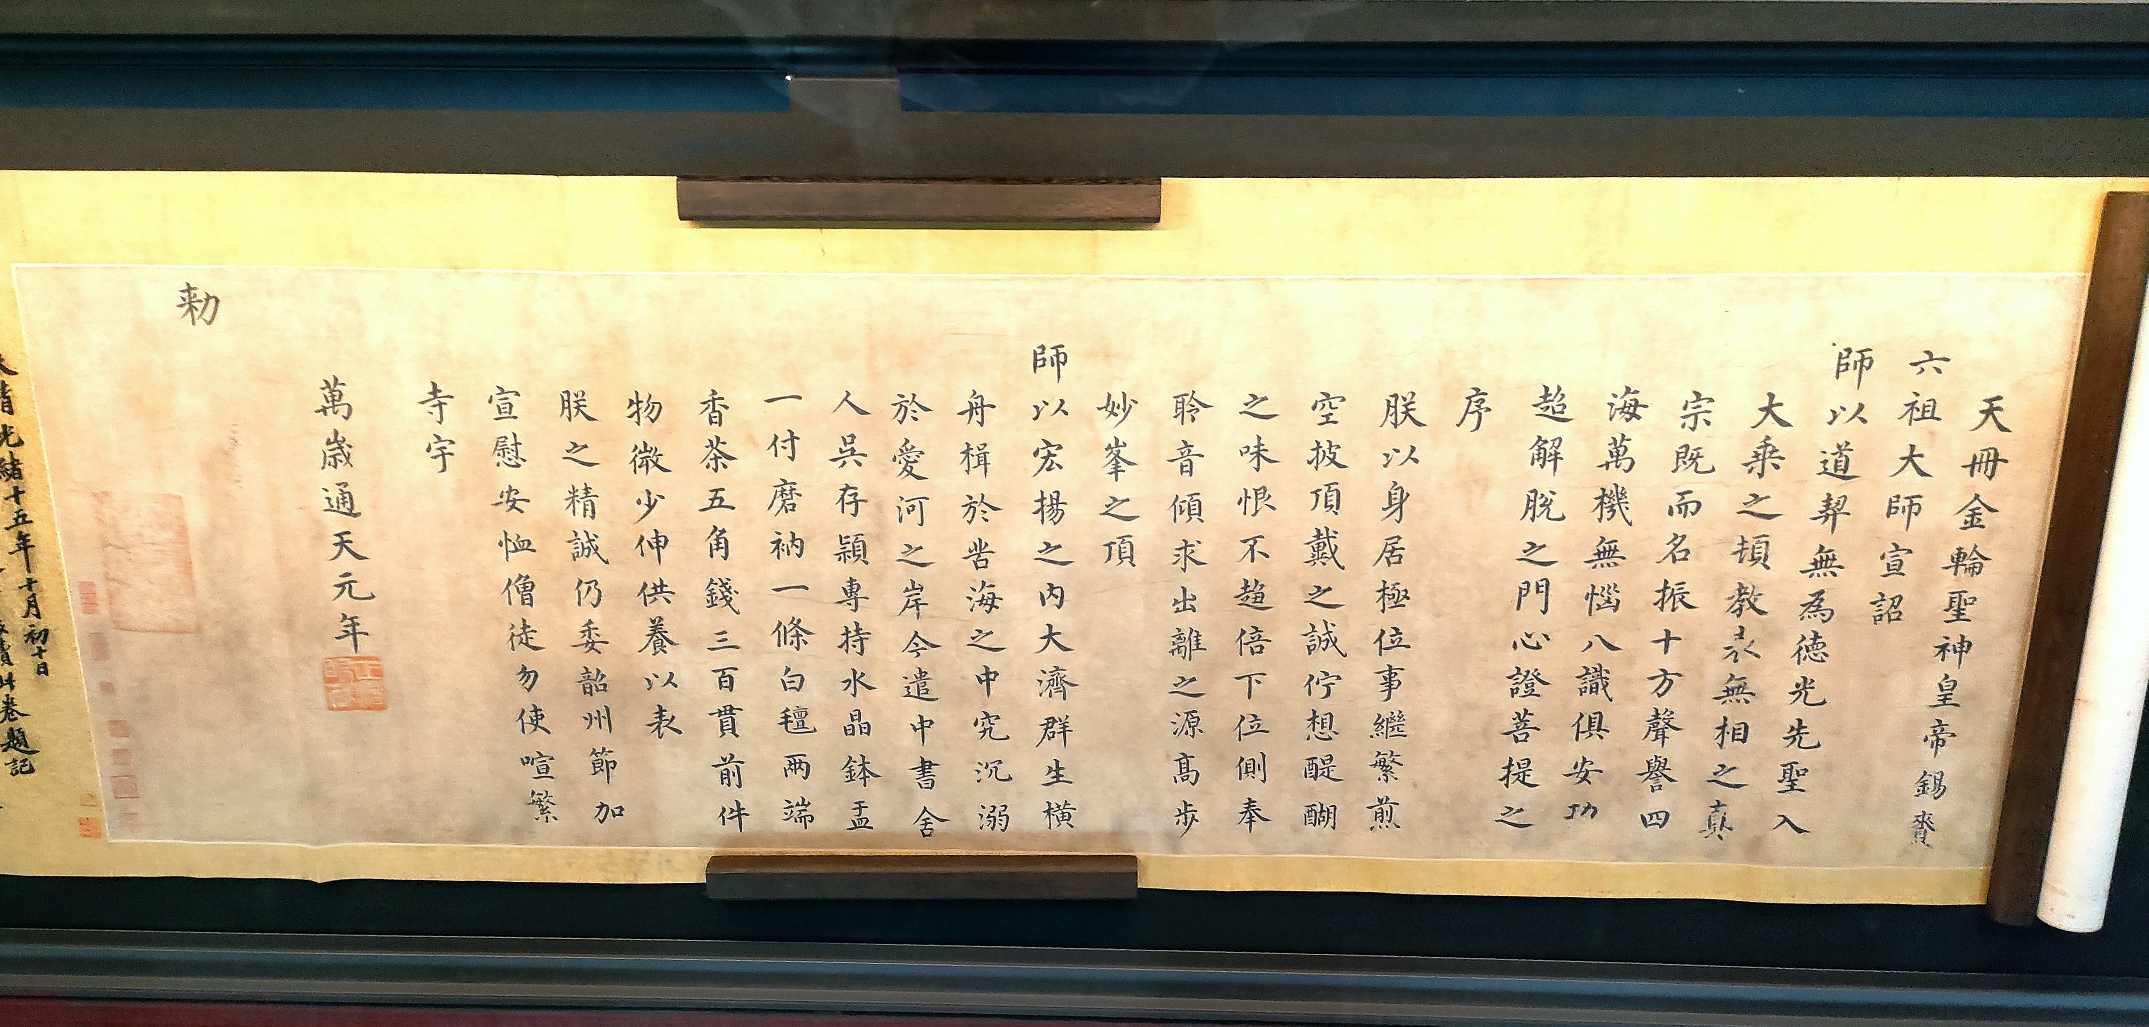 天冊金輪聖神皇帝錫賚
六祖大師宣詔
師以道契無為德光先聖入
大乘之頓教表無相之真
宗既而名振十方聲譽四
海萬機無惱八識俱安功
超解脫之門心證菩提之
序
朕以身居極位事繼繁煎
空披頂戴之誠佇想醍醐
之味恨不趨倍下位側奉
聆音傾求出離之源高步
妙峯之頂
師以宏揚之內大濟群生橫
舟楫於苦海之中究沉溺
於愛河之岸今遣中書舍
人吳存穎專持水晶鉢盂
一付磨衲一條白氈兩端
香茶五角錢三百貫前件
物微少伸供養以表
朕之精誠仍委韶州節加
宣慰安恤僧徒勿使喧繁
寺宇
萬歲通天元年
勅
大清光緒十五年十月初十日
卷題記